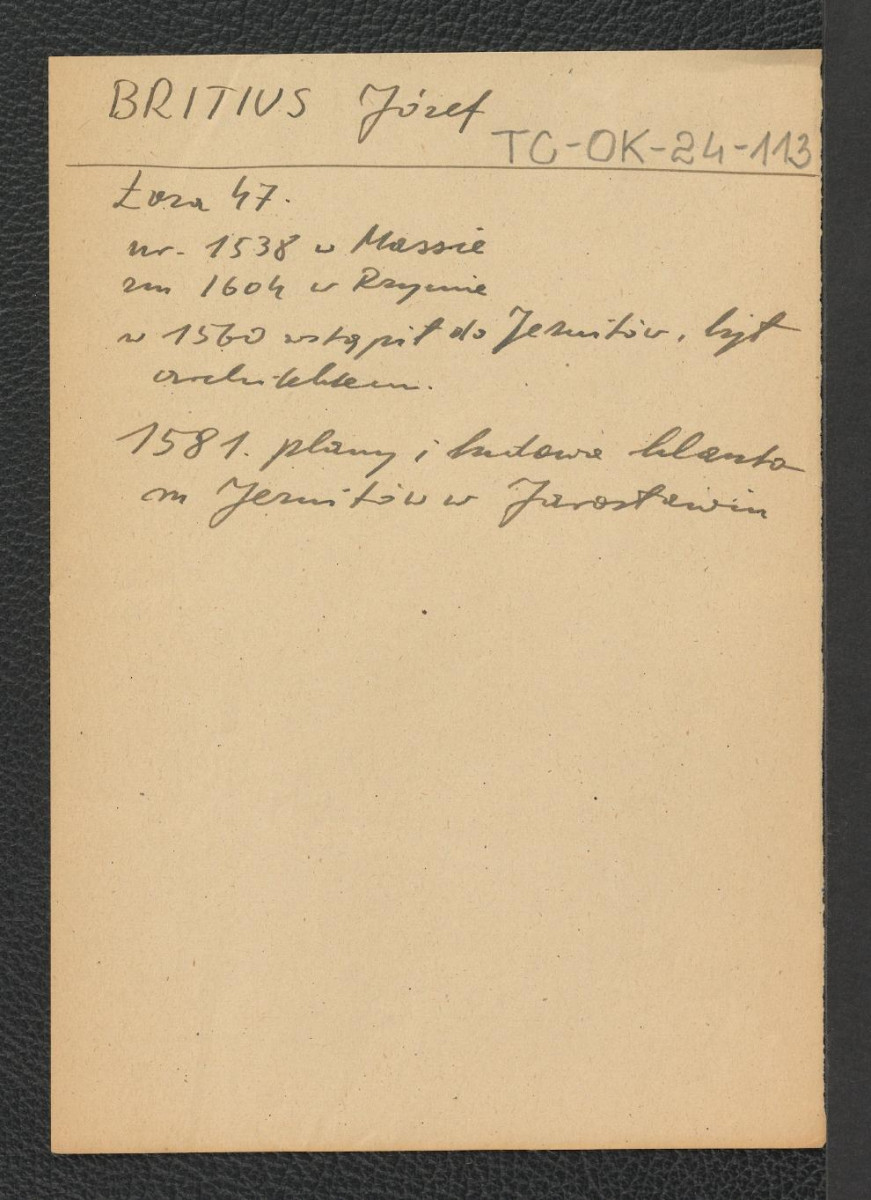 BRITIUS Józef
TC-OK-24-113
Łoza 47.
ur. 1538 w Massie
zm 1604 w Rzymie
w 1560 wstąpił do Jezuitów, był
architektem.
1581. plany i budowa klaszto
ru Jezuitów w Jarosławiu